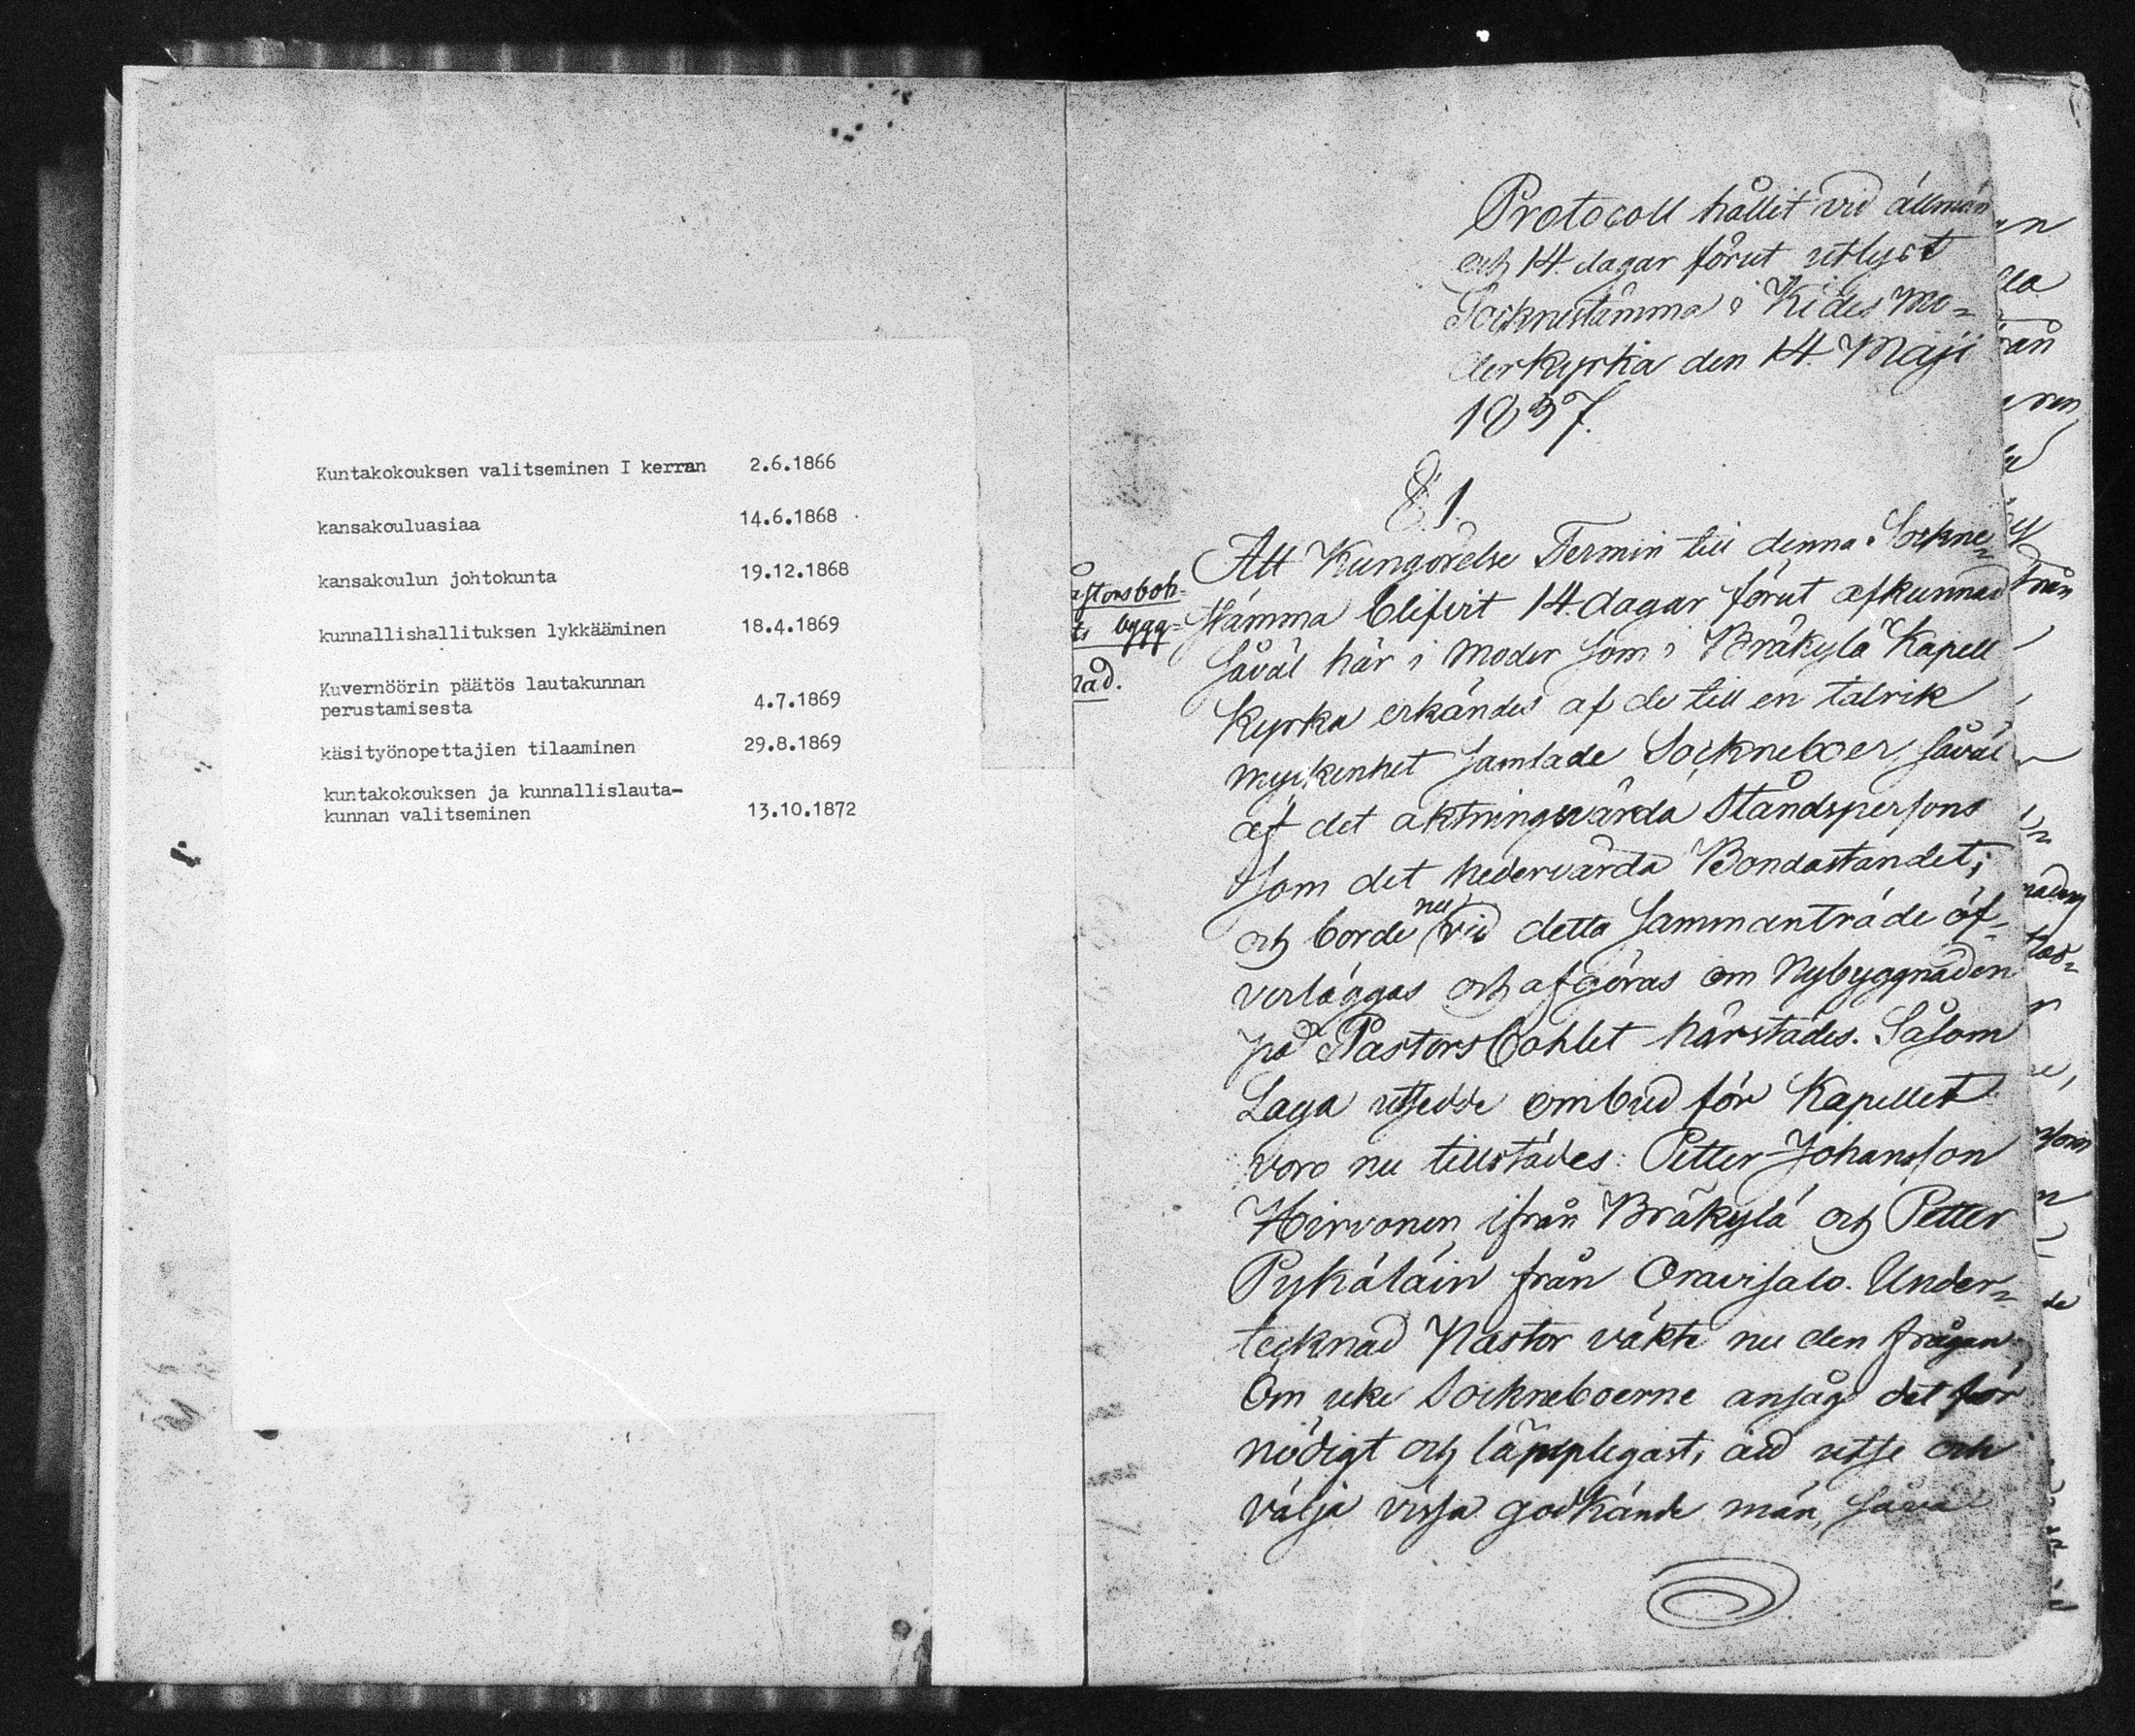 Kuntakokouksen valitseminen I kerran 2.6.1866
kansakouluasiaa 14.6.1868
kansakoulun johtokunta 19.12.1868
kunnallishallituksen lykkääminen 18.4.1869
Kuvernöörin päätös lautakunnan
perustamisesta 4.7.1869
käsityönopettajien tilaaminen 29.8.1869
kuntakokouksen ja kunnallislauta-
kunnan valitseminen 13.10.1872
Protocoll hållit vid allmän
och 14. dagar förut utlyst
Socknestämma i Kides Mo=
derkyrka den 14. Maji
1837.
§ 1.
Att Kungörelse Termin till denna Sockne=
stämma blifvit 14. dagar förut afkunnad
såväl här i Moder som i Bräkylä Kapell
Kyrka erkändes af de till en talrik
myckenhet samlade Sockneboer, såväl
af det aktningsvärda Ståndspersons
som det hedervärda Bondaståndet;
och borde nu vid detta sammanträde öf=
verläggas och afgöras om Nybyggnaden
på Pastorsbohlet härstädes. Såsom
Laga utsedde ombud för Kapellet
voro nu tillstädes: Petter Johansson
Hirvonen ifrån Bräkylä och Petter
Pykäläin från Oravisalo. Under=
tecknad Pastor väkte nu den frågan,
Om icke Sockneboerne ansåg det för
nödigt och lämpligast, att utse och
välja vissa godkände män, såvä
astorsboh=
ts bygg=
nad.